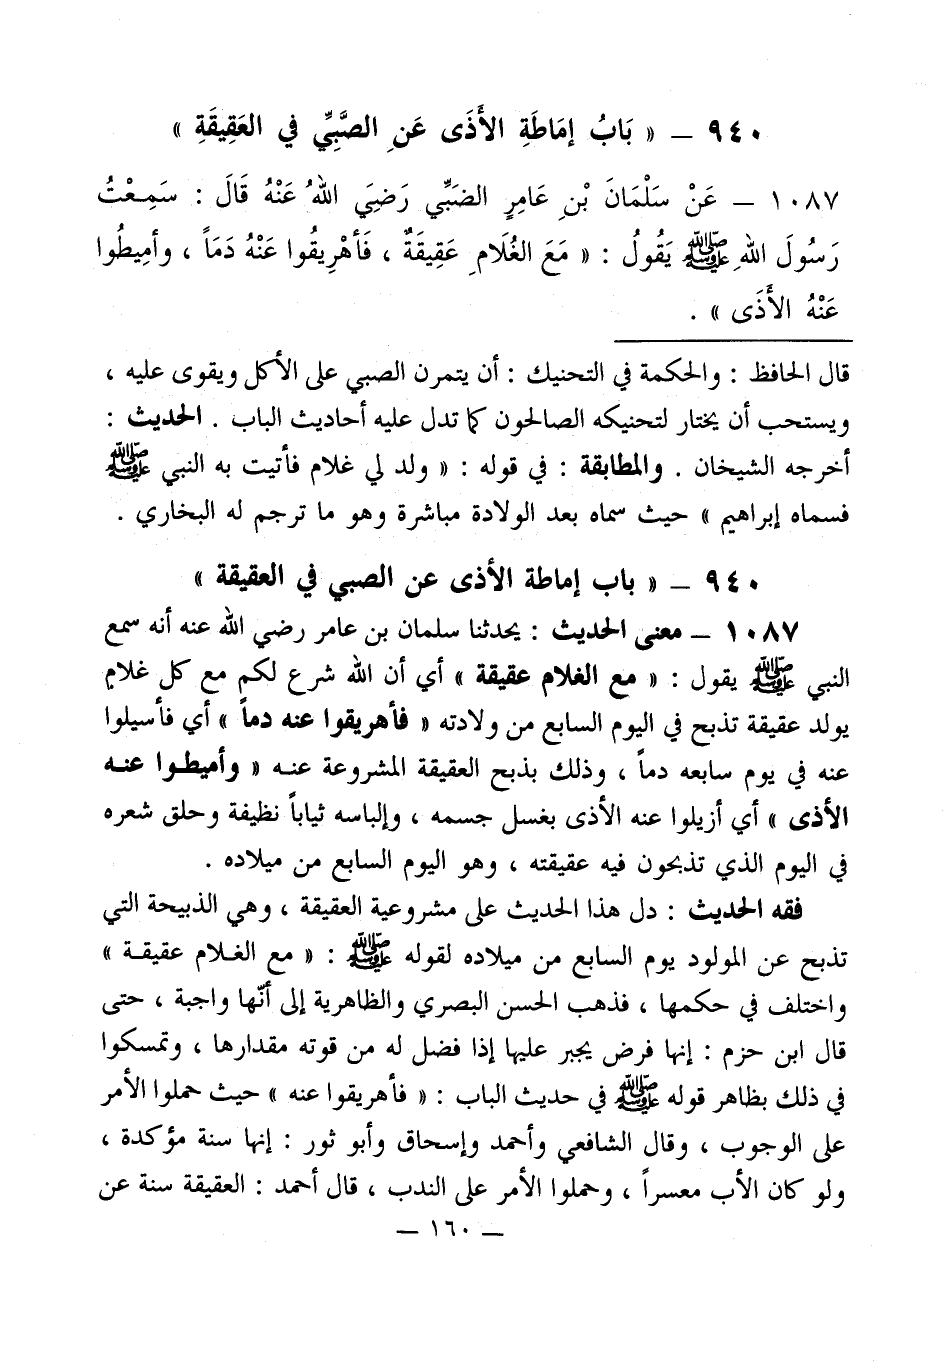 ٩٤٠ – « بَابُ إمَاطَةِ الأَذَى عَنِ الصَّبِيِّ في العَقِيقَةِ »
١٠٨٧ – عَنْ سَلْمَانَ بْنِ عَامِرٍ الضَبِّي رَضِيَ اللهُ عَنْهُ قَالَ : سَمِعْتُ
رَسُولَ اللهِ ﷺ يَقُولُ : « مَعَ الغُلَامِ عَقِيقَةٌ ، فَأَهْرِيقُوا عَنْهُ دَمَاً ، وأَمِيطُوا
عَنْهُ الأَذَى » .
قال الحافظ : والحكمة في التحنيك : أن يتمرن الصبي على الأكل ويقوى عليه ،
ويستحب أن يختار لتحنيكه الصالحون كما تدل عليه أحاديث الباب . الحديث :
أخرجه الشيخان . والمطابقة : في قوله : « ولد لي غلام فأتيت به النبي ﷺ
فسماه إبراهيم » حيث سماه بعد الولادة مباشرة وهو ما ترجم له البخاري .
٩٤٠ – « باب إماطة الأذى عن الصبي في العقيقة »
١٠٨٧ – معنى الحديث : يحدثنا سلمان بن عامر رضي الله عنه أنه سمع
النبي ﷺ يقول : « مع الغلام عقيقة » أي أن الله شرع لكم مع كل غلامٍ
يولد عقيقة تذبح في اليوم السابع من ولادته « فأهريقوا عنه دماً » أي فأسيلوا
عنه في يوم سابعه دماً ، وذلك بذبح العقيقة المشروعة عنه « وأميطوا عنه
الأذى » أي أزيلوا عنه الأذى بغسل جسمه ، وإلباسه ثياباً نظيفة وحلق شعره
في اليوم الذي تذبحون فيه عقيقته ، وهو اليوم السابع من ميلاده .
فقه الحديث : دل هذا الحديث على مشروعية العقيقة ، وهي الذبيحة التي
تذبح عن المولود يوم السابع من ميلاده لقوله ﷺ : « مع الغلام عقيقة »
واختلف في حكمها ، فذهب الحسن البصري والظاهرية إلى أنّها واجبة ، حتى
قال ابن حزم : إنها فرض يجبر عليها إذا فضل له من قوته مقدارها ، وتمسكوا
في ذلك بظاهر قوله ﷺ في حديث الباب : « فأهريقوا عنه » حيث حملوا الأمر
على الوجوب ، وقال الشافعي وأحمد وإسحاق وأبو ثور : إنها سنة مؤكدة ،
ولو كان الأب معسراً ، وحملوا الأمر على الندب ، قال أحمد : العقيقة سنة عن
– ١٦٠ –